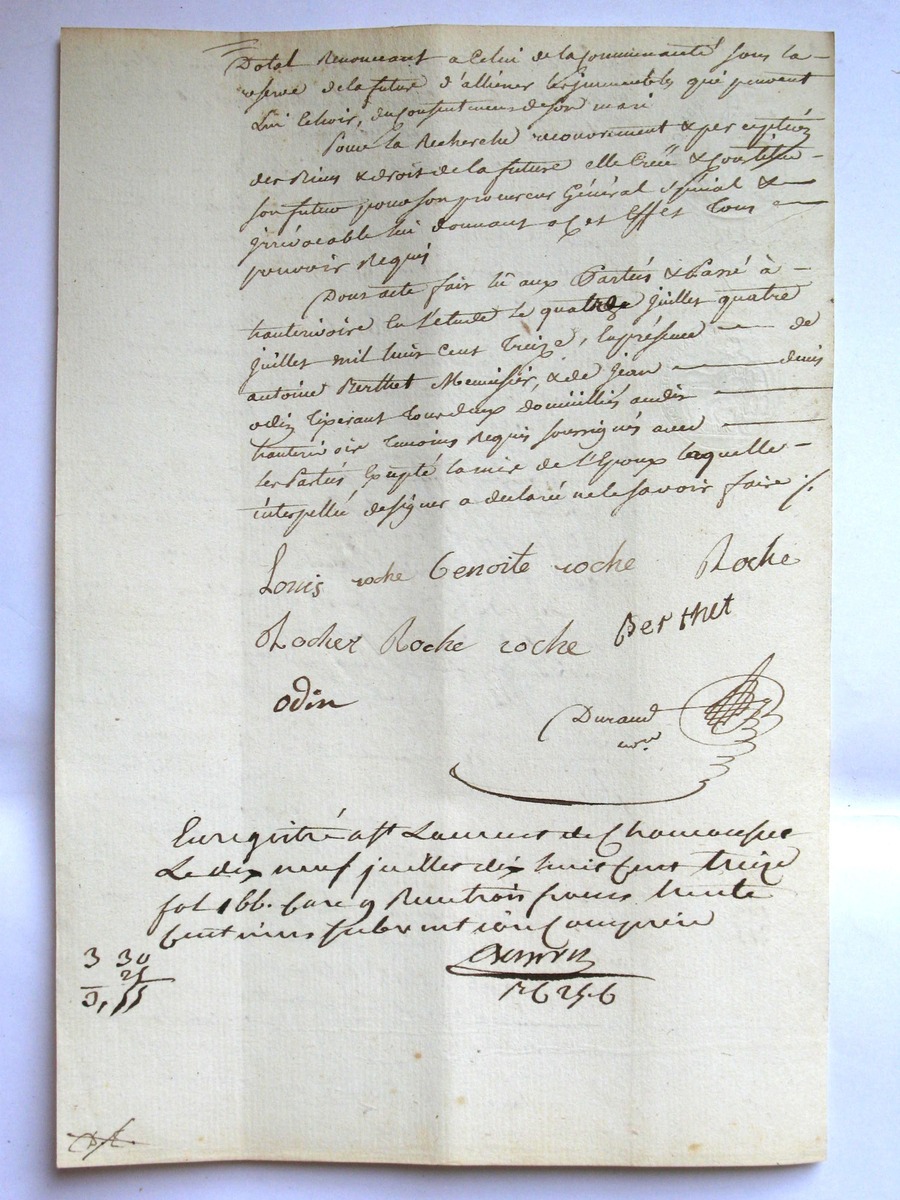 Dotal Renonceant a Celui de la Communauté sous la
reserve de la future d'alliéner les jmmeubles qui peuvent
lui Echoir, du Consentement de son mari
Pour la Recherche recouvrement & perception
des Biens & droit de la future elle Créé & Constitue
son futur pour son procureur Général Spécial &
jrrévocable lui donnant a Cet Effet Tous
pouvoir Requis
Dont acte fait lû aux Parties & Passé à
hauterivoire En l'etude le quatre juillet quatre
juillet mil huit Cent Treize, En présence de
antoine Berthet Menuisier, & de jean denis
odin Tisserant Tous deux domiciliés audit
hauterivoire Temoins Requis soussignés avec
les Parties Excepté la mere de l'Epoux laquelle
interpellée de signer a declarée ne le savoir faire ./.
Louis roche Benoite roche Roche
Rocher Roche roche Berthet
odin
Durand
nore
Enregistré a St Laurent de Chamousset
Le dix neuf juillet dix huit Cent treize
fol 166. Care 9 Reçu trois francs trente
Centimes subvention Comprise
3 30
25
3,55